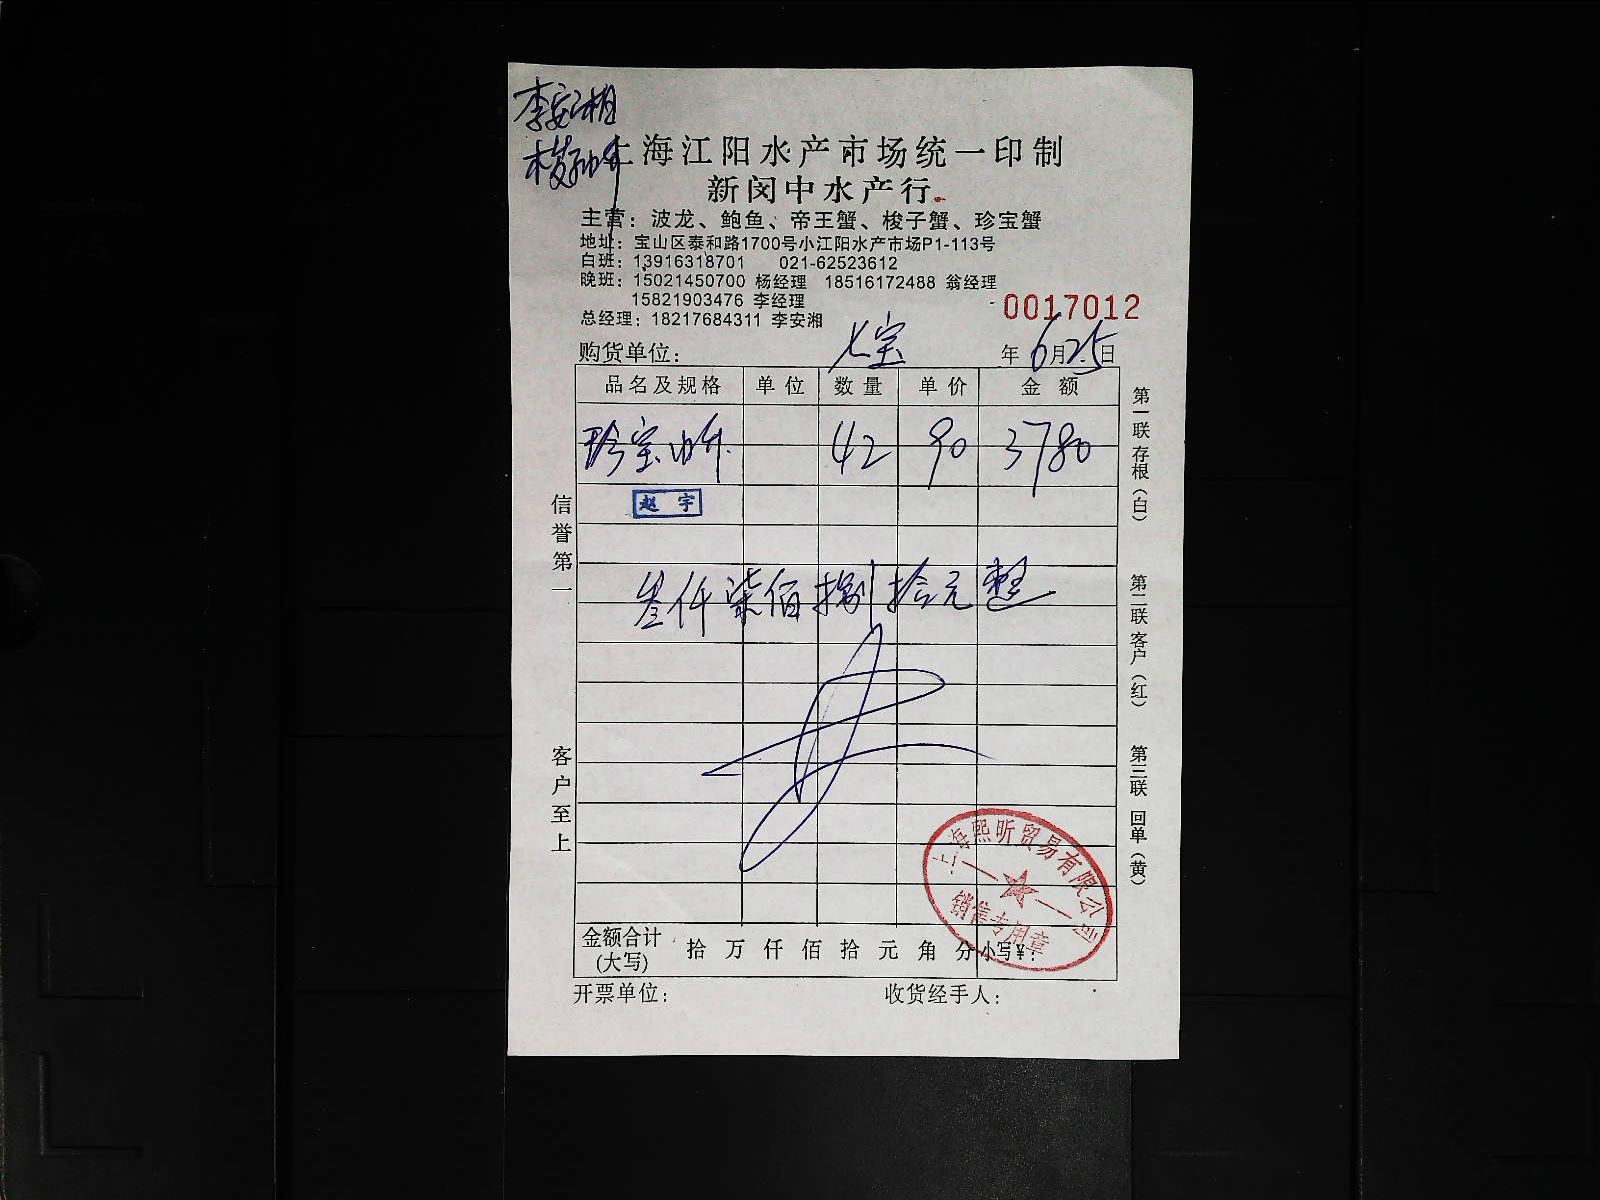 李安湘
上海江阳水产市场统一印制
新闵中水产行
主营：波龙、鲍鱼、帝王蟹、梭子蟹、珍宝蟹
地址：宝山区泰和路1700号小江阳水产市场P1-113号
白班：13916318701 021-62523612
晚班：15021450700 杨经理 18516172488 翁经理
15821903476 李经理
0017012
总经理：18217684311 李安湘
购货单位： 七宝 年 6月25日
品名及规格 单位 数量 单价 金额
珍宝 42 90 3780
赵宇
叁仟柒佰捌拾元整
信誉第一
客户至上
第一联 存根（白）
第二联 客户（红）
第三联 回单（黄）
上海熙昕贸易有限公司
销售专用章
金额合计(大写) 拾 万 仟 佰 拾 元 角 分 小写¥：
开票单位： 收货经手人：